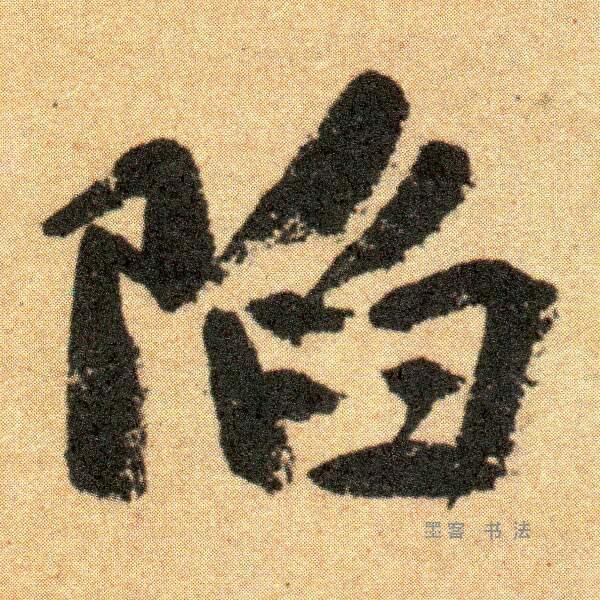 陷
墨客 书法